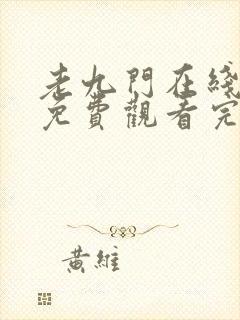 老九門在綫
免費觀看完
黃維